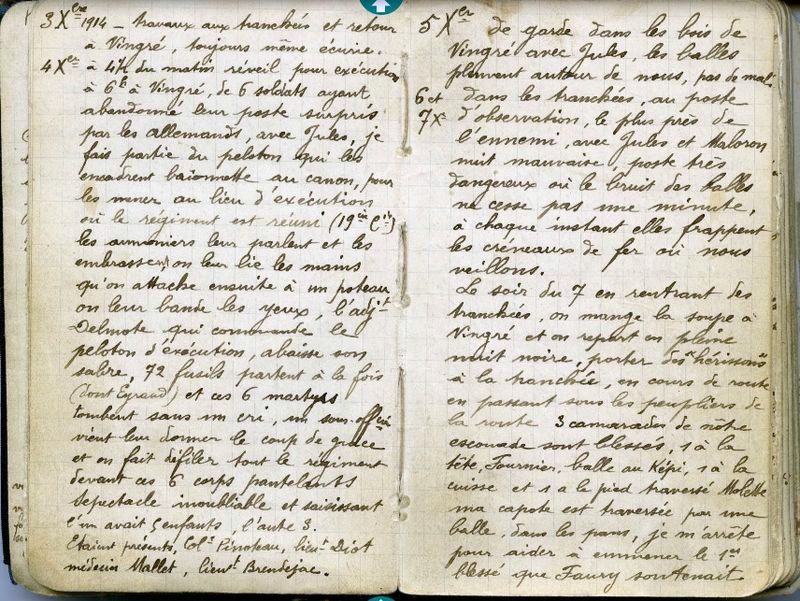 3 Xbre 1914 – travaux aux tranchées et retour
à Vingré, toujours même écurie.
4 Xer à 4h du matin réveil pour exécution
à 6h à Vingré, de 6 soldats ayant
abandonné leur poste surpris
par les allemands, avec Jules, je
fais partie du peloton qui les
encadrent baïonnette au canon, pour
les mener au lieu d'exécution
où le régiment est réuni (19em Cie)
les aumoniers leur parlent et les
embrassent, on leur lie les mains
qu'on attache ensuite à un poteau
on leur bande les yeux, l'adjt
Delmote qui commande le
peloton d'exécution, abaisse son
sabre, 72 fusils partent à la fois
(dont Eyraud) et ces 6 martyrs
tombent sans un cri, un sous-officier
vient leur donner le coup de grâce
et on fait défiler tout le régiment
devant ces 6 corps pantelants
Spectacle inoubliable et saisissant
l'un avait 5 enfants, l'autre 3.
Etaient présents, Col. Pinoteau, lieut Diot
médecin Mallet, lieut Brendejac.
5 Xer de garde dans les bois de
Vingré avec Jules, les balles
pleuvent autour de nous, pas de mal.
6 et dans les tranchées, au poste
7 Xe d'observation, le plus près de
l'ennemi, avec Jules et Maloron
nuit mauvaise, poste très
dangereux où le bruit des balles
ne cesse pas une minute,
à chaque instant elles frappent
les créneaux de fer où nous
veillons.
Le soir du 7 en rentrant des
tranchées, on mange la soupe à
Vingré et on repart en pleine
nuit noire, porter des "hérissons"
à la tranchée, en cours de route
en passant sous les peupliers de
la route 3 camarades de notre
escouade sont blessés, 1 à la
tête, Fournier, balle au Képi, 1 à la
cuisse et 1 a le pied traversé Molette
ma capote est traversée par une
balle, dans les pans, je m'arrête
pour aider à emmener le 1er
blessé que Faury soutenait.